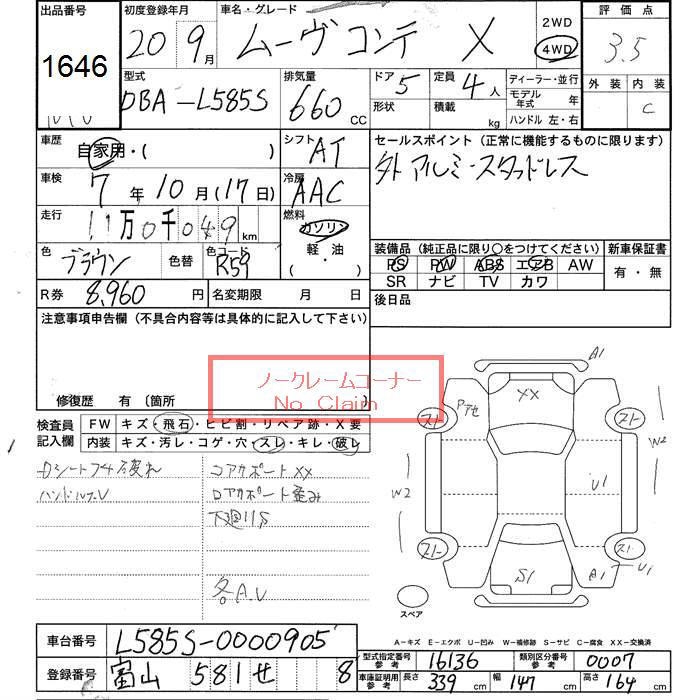 出品番号
1646
初度登録年月
20 9月
車名・グレード
ムーヴコンテ X
2WD
4WD
評価点
3.5
外装 内装
C
型式
DBA-L585S
排気量
660 CC
ドア 5
形状
定員 4人
積載 kg
ディーラー・並行
モデル年式 年
ハンドル 左・右
車歴
自家用・( )
シフト
AT
セールスポイント(正常に機能するものに限ります)
外アルミ・スタッドレス
車検
7年10月(17日)
冷房
AAC
走行
11万0千049km
燃料
ガソリン
軽・油
( ・ )
色
ブラウン
色替
色コード
R59
装備品(純正品に限り○をつけてください)
PS PW ABS エアB AW
SR ナビ TV カワ
新車保証書
有・無
R券 8,960円
名変期限 月 日
後日品
注意事項申告欄(不具合内容等は具体的に記入して下さい)
ノークレームコーナー
No Claim
修復歴 有 〔箇所
検査員記入欄
FW キズ・飛石・ヒビ割・リペア跡・X要
内装 キズ・汚レ・コゲ・穴・スレ・キレ・破レ
コアサポートXX
ロアサポート歪み
下廻リサ
各A.U
A1
XX
Pアセ
スト
スト
W2
W2
U1
スト
スト
U1
S1
A1
スペア
A-キズ E-エクボ U-凹み W-補修跡 S-サビ C-腐食 XX-交換済
車台番号
L585S-0000905
登録番号
富山 581 せ 8
型式指定番号 参考 16136
類別区分番号 参考 0007
車庫証明用 参考
長さ 339 cm
幅 147 cm
高さ 164 cm